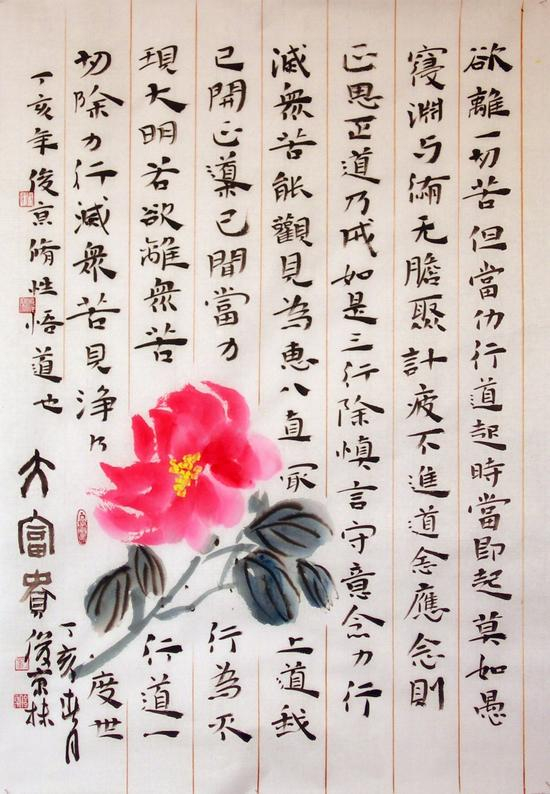 欲離一切苦但當仂行道起時當即起莫如愚
淵与无膽聚計疲不進道念應念則
正思正道乃成如是三行除慎言守意念力行
滅衆苦能觀見為惠八直冢上道我
已開正導已間當力行為不
現大明若欲離衆苦行道一
切除力行滅衆苦見淨乃度世
丁亥年俊京脩性悟道也
大富貴
丁亥春月
俊京抹